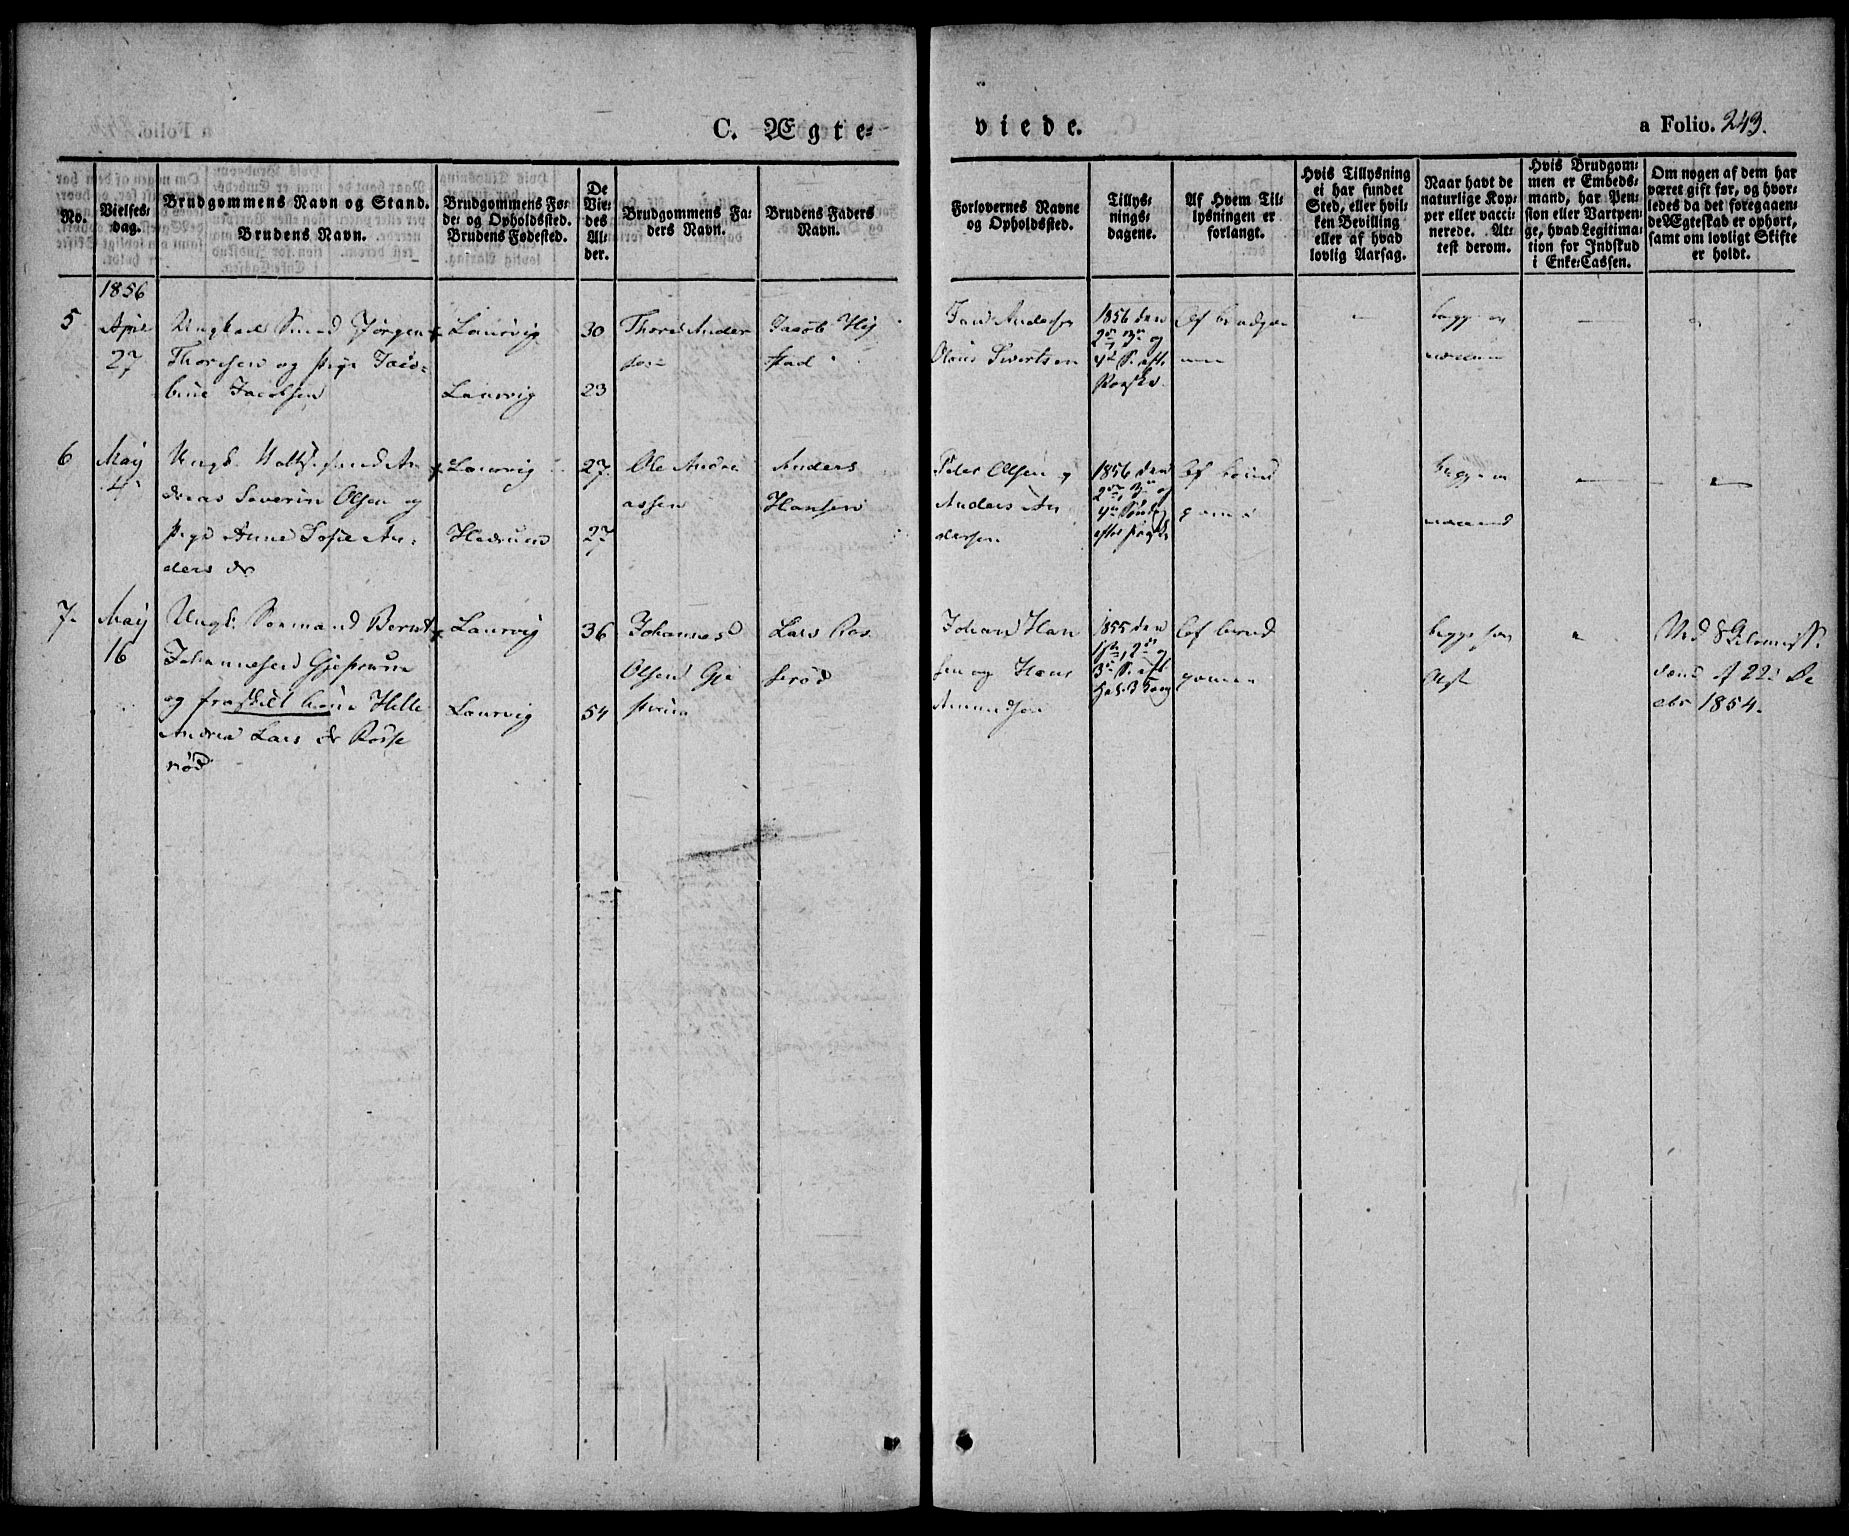 C. Ægte-
viede.
a Folio. 243.
No.
Vielses-
dag.
Brudgommens Navn og Stand.
Brudens Navn.
Brudgommens Fø-
de- og Opholdssted.
Brudens Fødested.
De
Vie-
des
Al-
der.
Brudgommens Fa-
ders Navn.
Brudens Faders
Navn.
Forlovernes Navne
og Opholdssted.
Tillys-
nings-
dagene.
Af Hvem Til-
lysningen er
forlangt.
Hvis Tillysning
ei har fundet
Sted, eller hvil-
ken Bevilling
eller af hvad
lovlig Aarsag.
Naar havt de
naturlige Kop-
per eller vacci-
nerede. At-
test derom.
Hvis Brudgom-
men er Embeds-
mand, har Pen-
sion eller Vartpen-
ge, hvad Legitima-
tion for Indskud
i Enke-Cassen.
Om nogen af dem har
været gift før, og hvor-
ledes da det foregaaen-
de Ægteskab er ophørt,
samt om lovligt Skifte
er holdt.
1856
5
April
27
Ungkarl Smed Jørgen
Thoresen og Pige Jacob-
bine Jacobsen
Laurvig
Laurvig
30
23
Thore Ander
sen
Jacob
stad
Andersen
Olaus Sivertsen
1856 den
2den, 3die og
4de S. efter
Paaske.
Af brudgom
men
begge
6
May
4
Ungk. An
dreas Severin Olsen og
Pige Anne Sofie An-
ders dr
Laurvig
Hedrum
27
27
Ole Andre
assen
Anders
Hansen
Peder Olsen og
Anders An
dersen
1856 den
2den, 3die og
4de Søndag
efter Paaske
Af brud
gommen
begge
7
May
16
Ungk: Sømand Bernt
Johannesen
og fraskilt kone Helle
Andrea Lars dr Rosse
rød
Laurvig
Laurvig
36
54
Johannes
Olsen Gje
Lars Ros
serød
Johan Han
sen og Hans
Amundsen
1855 den
1ste, 2den og
3die S. eft.
Hel. 3 Kong
Af brud
gommen
begge
Ved
22 De
cbr 1854.